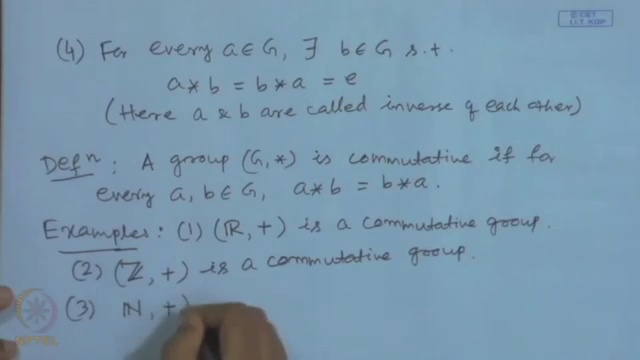 © CET
I.I.T. KGP
(4) For every a ∈ G, ∃ b ∈ G s.t.
a * b = b * a = e
(Here a & b are called inverse of each other)
Defⁿ : A group (G, *) is commutative if for
every a, b ∈ G, a * b = b * a.
Examples : (1) (ℝ, +) is a commutative group.
(2) (ℤ, +) is a commutative group.
(3) ℕ, +)
NPTEL